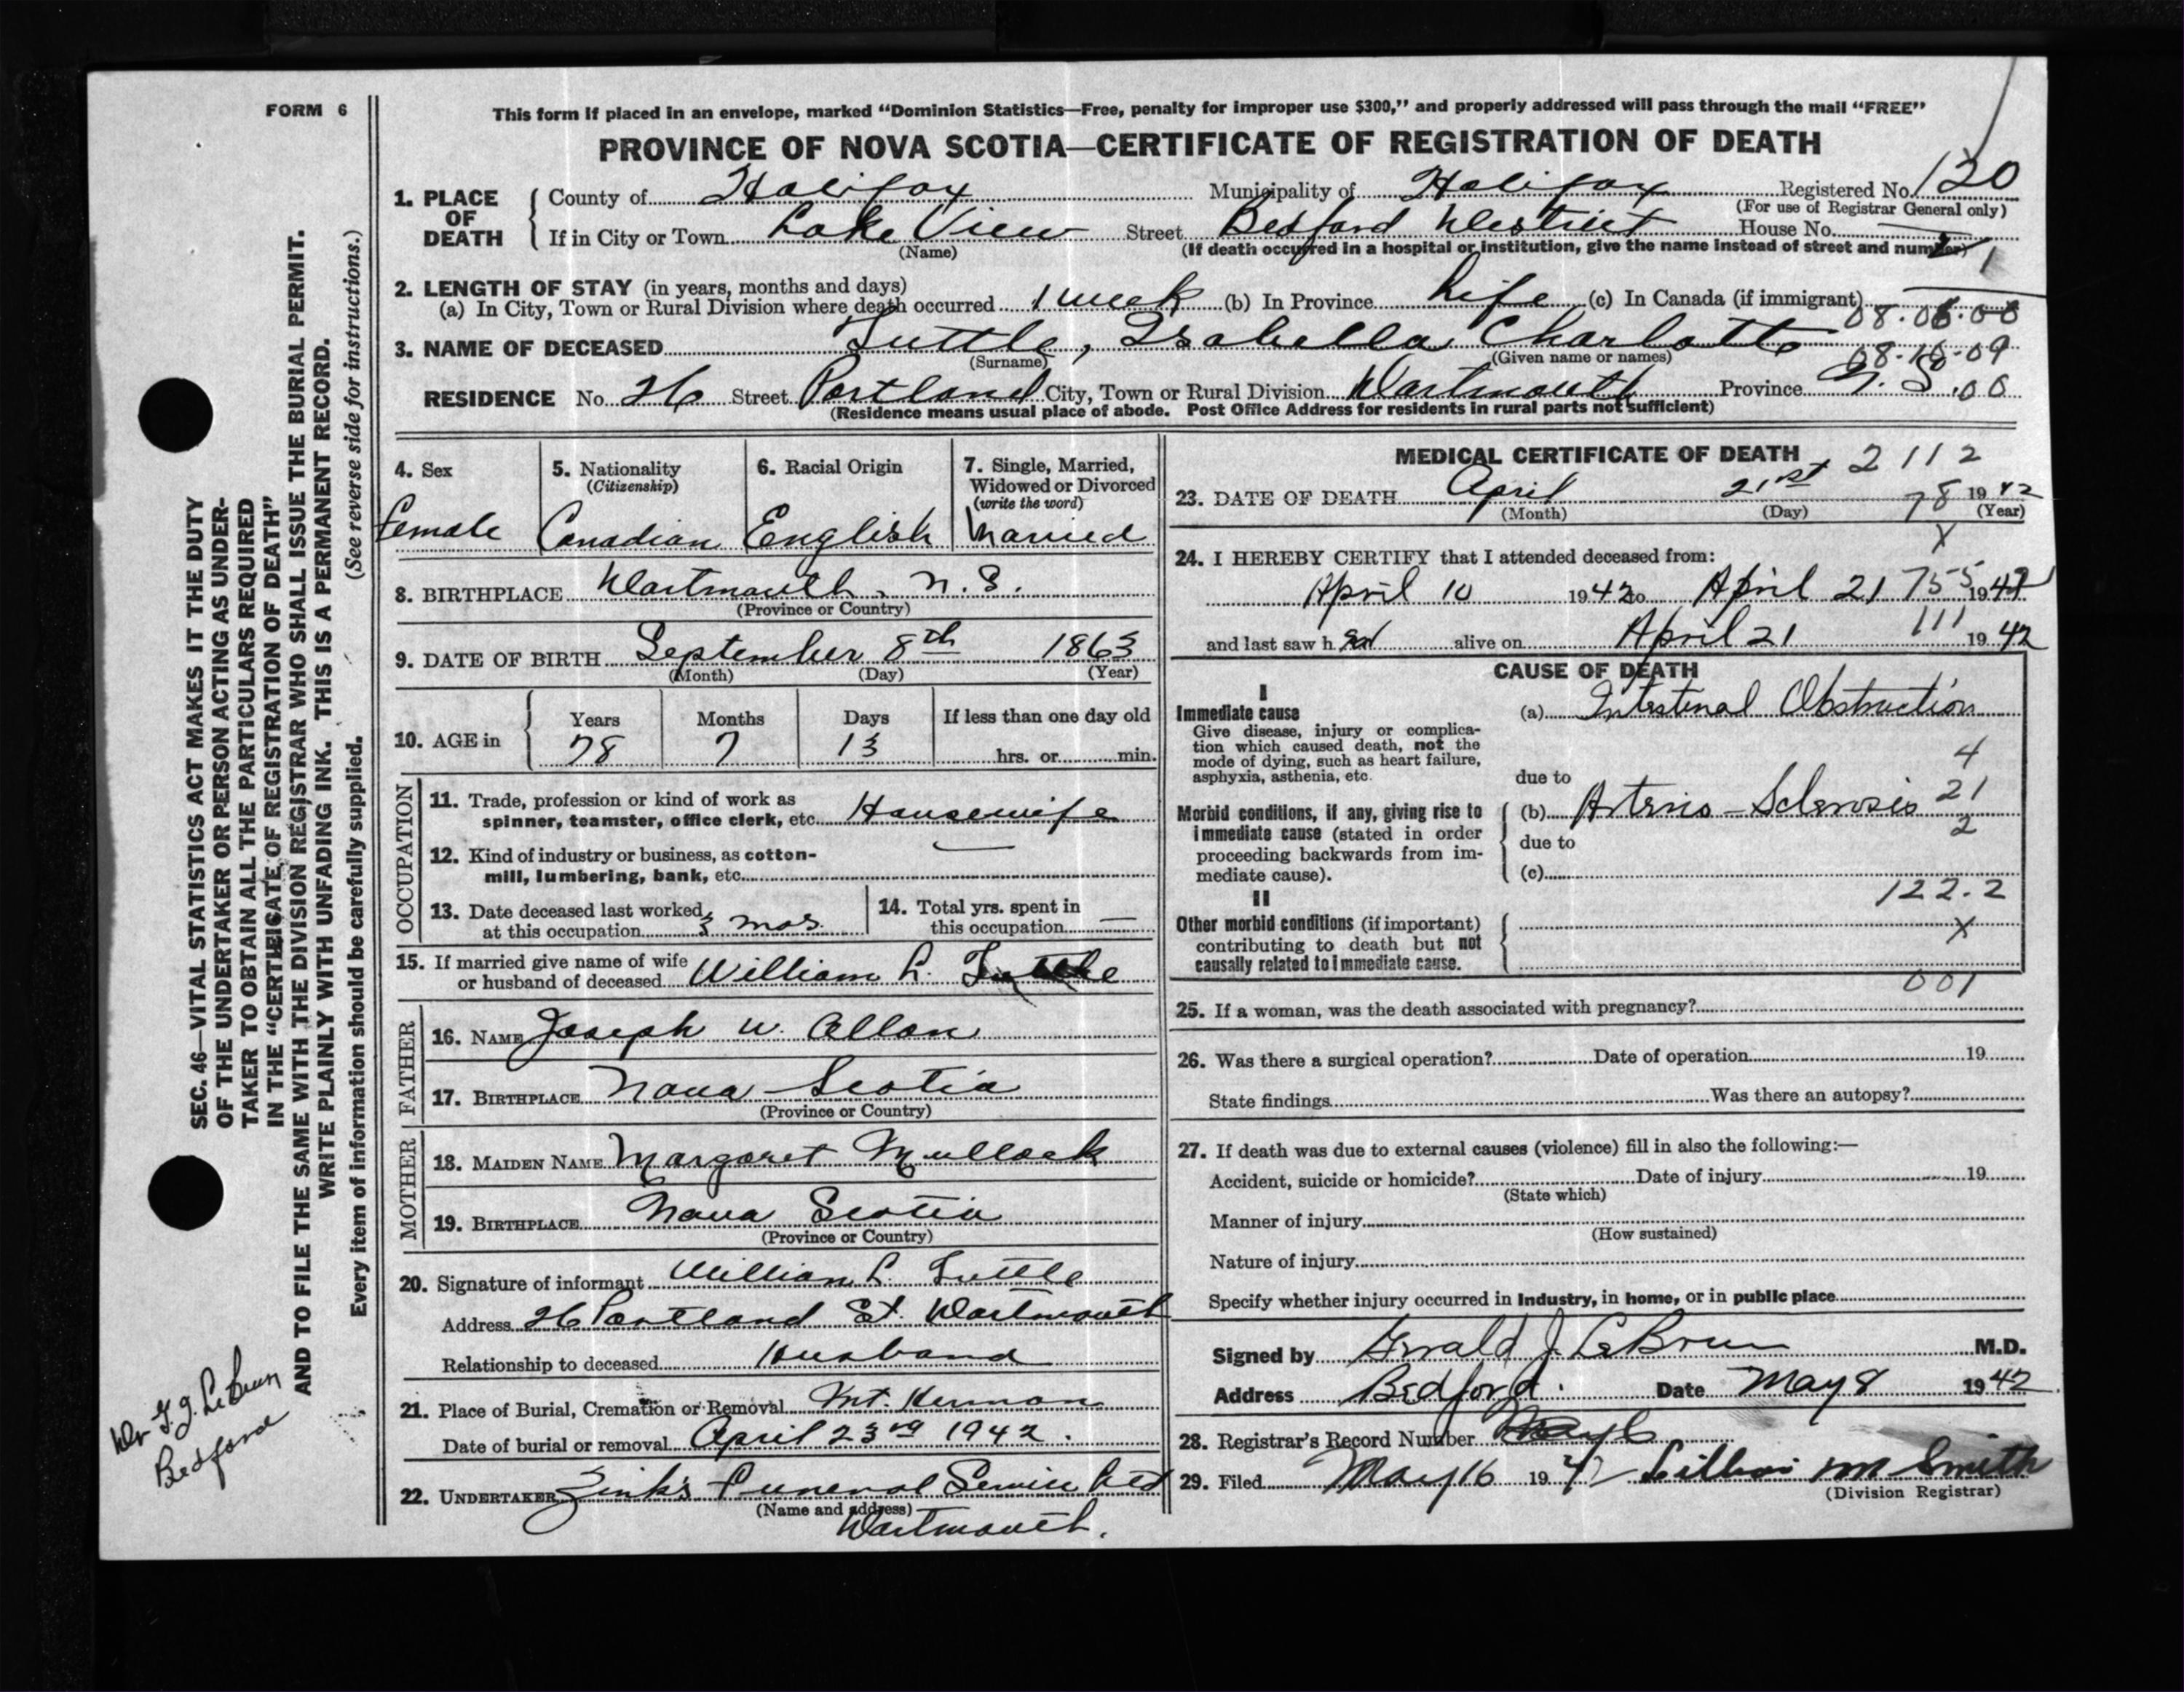 FORM 6
This form if placed in an envelope, marked “Dominion Statistics—Free, penalty for improper use $300,” and properly addressed will pass through the mail “FREE”
PROVINCE OF NOVA SCOTIA—CERTIFICATE OF REGISTRATION OF DEATH
1. PLACE OF DEATH County of Halifax Municipality of Halifax Registered No. 120
(For use of Registrar General only)
If in City or Town Lake View Street Bedford District House No.
(Name) (If death occurred in a hospital or institution, give the name instead of street and number)
2. LENGTH OF STAY (in years, months and days)
(a) In City, Town or Rural Division where death occurred 1 week (b) In Province Life (c) In Canada (if immigrant)
3. NAME OF DECEASED Tuttle, Isabella Charlotte
(Surname) (Given name or names)
08-10-09
RESIDENCE No. 26 Street Portland City, Town or Rural Division Dartmouth Province N. S. 00
(Residence means usual place of abode. Post Office Address for residents in rural parts not sufficient)
4. Sex
Female
5. Nationality
(Citizenship)
Canadian
6. Racial Origin
English
7. Single, Married,
Widowed or Divorced
(write the word)
Married
8. BIRTHPLACE Dartmouth, N. S.
(Province or Country)
9. DATE OF BIRTH September 8th 1863
(Month) (Day) (Year)
10. AGE in Years Months Days If less than one day old
78 7 13 hrs. or min.
OCCUPATION
11. Trade, profession or kind of work as
spinner, teamster, office clerk, etc. Housewife
12. Kind of industry or business, as cotton-
mill, lumbering, bank, etc. —
13. Date deceased last worked
at this occupation 3 mos.
14. Total yrs. spent in
this occupation —
15. If married give name of wife
or husband of deceased William L. Tuttle
FATHER
16. NAME Joseph W. Allan
17. BIRTHPLACE Nova Scotia
(Province or Country)
MOTHER
18. MAIDEN NAME Margaret Mullock
19. BIRTHPLACE Nova Scotia
(Province or Country)
20. Signature of informant William L. Tuttle
Address 26 Portland St. Dartmouth
Relationship to deceased Husband
21. Place of Burial, Cremation or Removal Mt. Hermon
Date of burial or removal April 23rd 1942.
22. UNDERTAKER Zink's Funeral Service Ltd
(Name and address)
Dartmouth.
MEDICAL CERTIFICATE OF DEATH 2112
23. DATE OF DEATH April 21st 1942
(Month) (Day) (Year)
78
X
24. I HEREBY CERTIFY that I attended deceased from:
April 10 1942 to April 21 1942
755
and last saw her alive on April 21 1942
111
CAUSE OF DEATH
I
Immediate cause
Give disease, injury or complica-
tion which caused death, not the
mode of dying, such as heart failure,
asphyxia, asthenia, etc.
(a) Intestinal Obstruction
4
due to
Morbid conditions, if any, giving rise to
immediate cause (stated in order
proceeding backwards from im-
mediate cause).
(b) Arterio-Sclerosis 21
2
due to
(c)
122.2
II
Other morbid conditions (if important)
contributing to death but not
causally related to immediate cause.
X
001
25. If a woman, was the death associated with pregnancy?
26. Was there a surgical operation? Date of operation 19
State findings Was there an autopsy?
27. If death was due to external causes (violence) fill in also the following:—
Accident, suicide or homicide? Date of injury 19
(State which)
Manner of injury
(How sustained)
Nature of injury
Specify whether injury occurred in Industry, in home, or in public place
Signed by Gerald J. LeBrun M.D.
Address Bedford. Date May 8 1942
28. Registrar's Record Number
29. Filed May 16 1942 Lillian M Smith
(Division Registrar)
SEC. 46—VITAL STATISTICS ACT MAKES IT THE DUTY
OF THE UNDERTAKER OR PERSON ACTING AS UNDER-
TAKER TO OBTAIN ALL THE PARTICULARS REQUIRED
IN THE “CERTIFICATE OF REGISTRATION OF DEATH”
AND TO FILE THE SAME WITH THE DIVISION REGISTRAR WHO SHALL ISSUE THE BURIAL PERMIT.
WRITE PLAINLY WITH UNFADING INK. THIS IS A PERMANENT RECORD.
Every item of information should be carefully supplied. (See reverse side for instructions.)
Dr G. J. LeBrun
Bedford